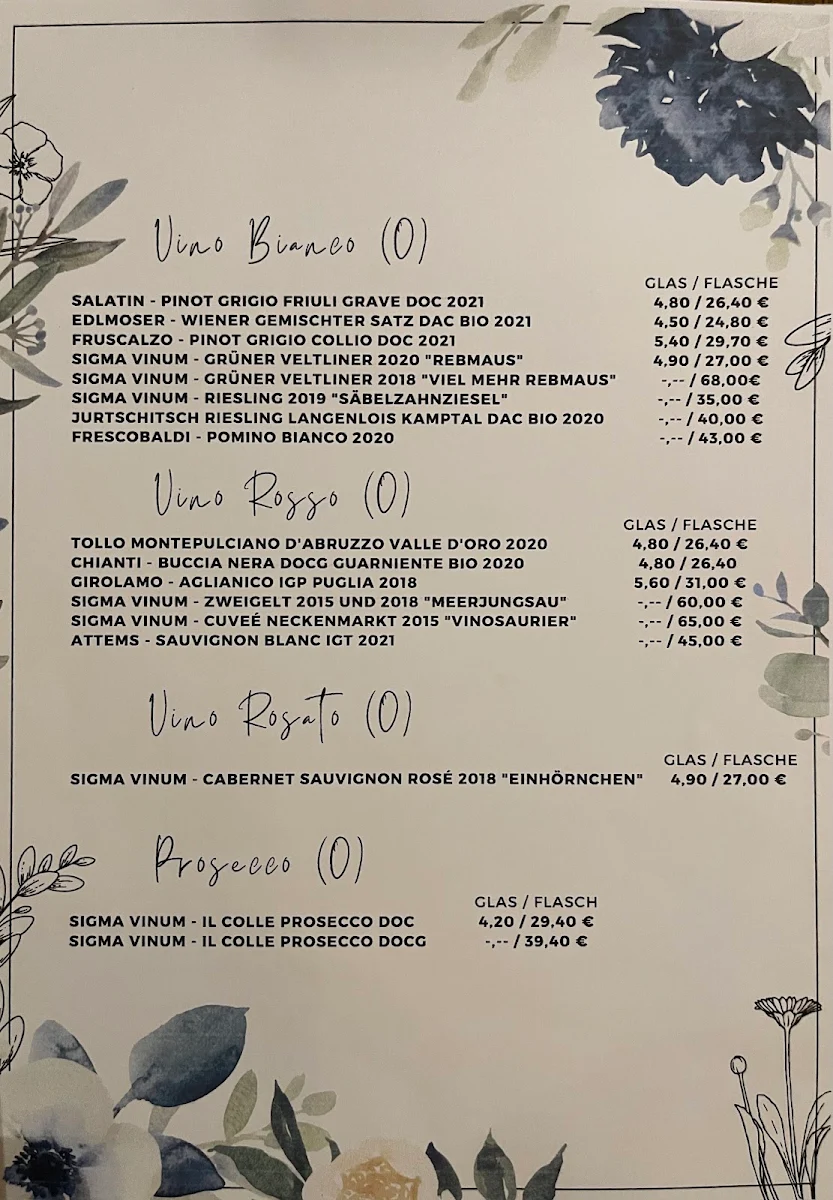 Vino Bianco (O)
GLAS / FLASCHE
SALATIN - PINOT GRIGIO FRIULI GRAVE DOC 2021 4,80 / 26,40 €
EDLMOSER - WIENER GEMISCHTER SATZ DAC BIO 2021 4,50 / 24,80 €
FRUSCALZO - PINOT GRIGIO COLLIO DOC 2021 5,40 / 29,70 €
SIGMA VINUM - GRÜNER VELTLINER 2020 "REBMAUS" 4,90 / 27,00 €
SIGMA VINUM - GRÜNER VELTLINER 2018 "VIEL MEHR REBMAUS" -,-- / 68,00€
SIGMA VINUM - RIESLING 2019 "SÄBELZAHNZIESEL" -,-- / 35,00 €
JURTSCHITSCH RIESLING LANGENLOIS KAMPTAL DAC BIO 2020 -,-- / 40,00 €
FRESCOBALDI - POMINO BIANCO 2020 -,-- / 43,00 €
Vino Rosso (O)
GLAS / FLASCHE
TOLLO MONTEPULCIANO D'ABRUZZO VALLE D'ORO 2020 4,80 / 26,40 €
CHIANTI - BUCCIA NERA DOCG GUARNIENTE BIO 2020 4,80 / 26,40
GIROLAMO - AGLIANICO IGP PUGLIA 2018 5,60 / 31,00 €
SIGMA VINUM - ZWEIGELT 2015 UND 2018 "MEERJUNGSAU" -,-- / 60,00 €
SIGMA VINUM - CUVEÉ NECKENMARKT 2015 "VINOSAURIER" -,-- / 65,00 €
ATTEMS - SAUVIGNON BLANC IGT 2021 -,-- / 45,00 €
Vino Rosato (O)
GLAS / FLASCHE
SIGMA VINUM - CABERNET SAUVIGNON ROSÉ 2018 "EINHÖRNCHEN" 4,90 / 27,00 €
Prosecco (O)
GLAS / FLASCH
SIGMA VINUM - IL COLLE PROSECCO DOC 4,20 / 29,40 €
SIGMA VINUM - IL COLLE PROSECCO DOCG -,-- / 39,40 €